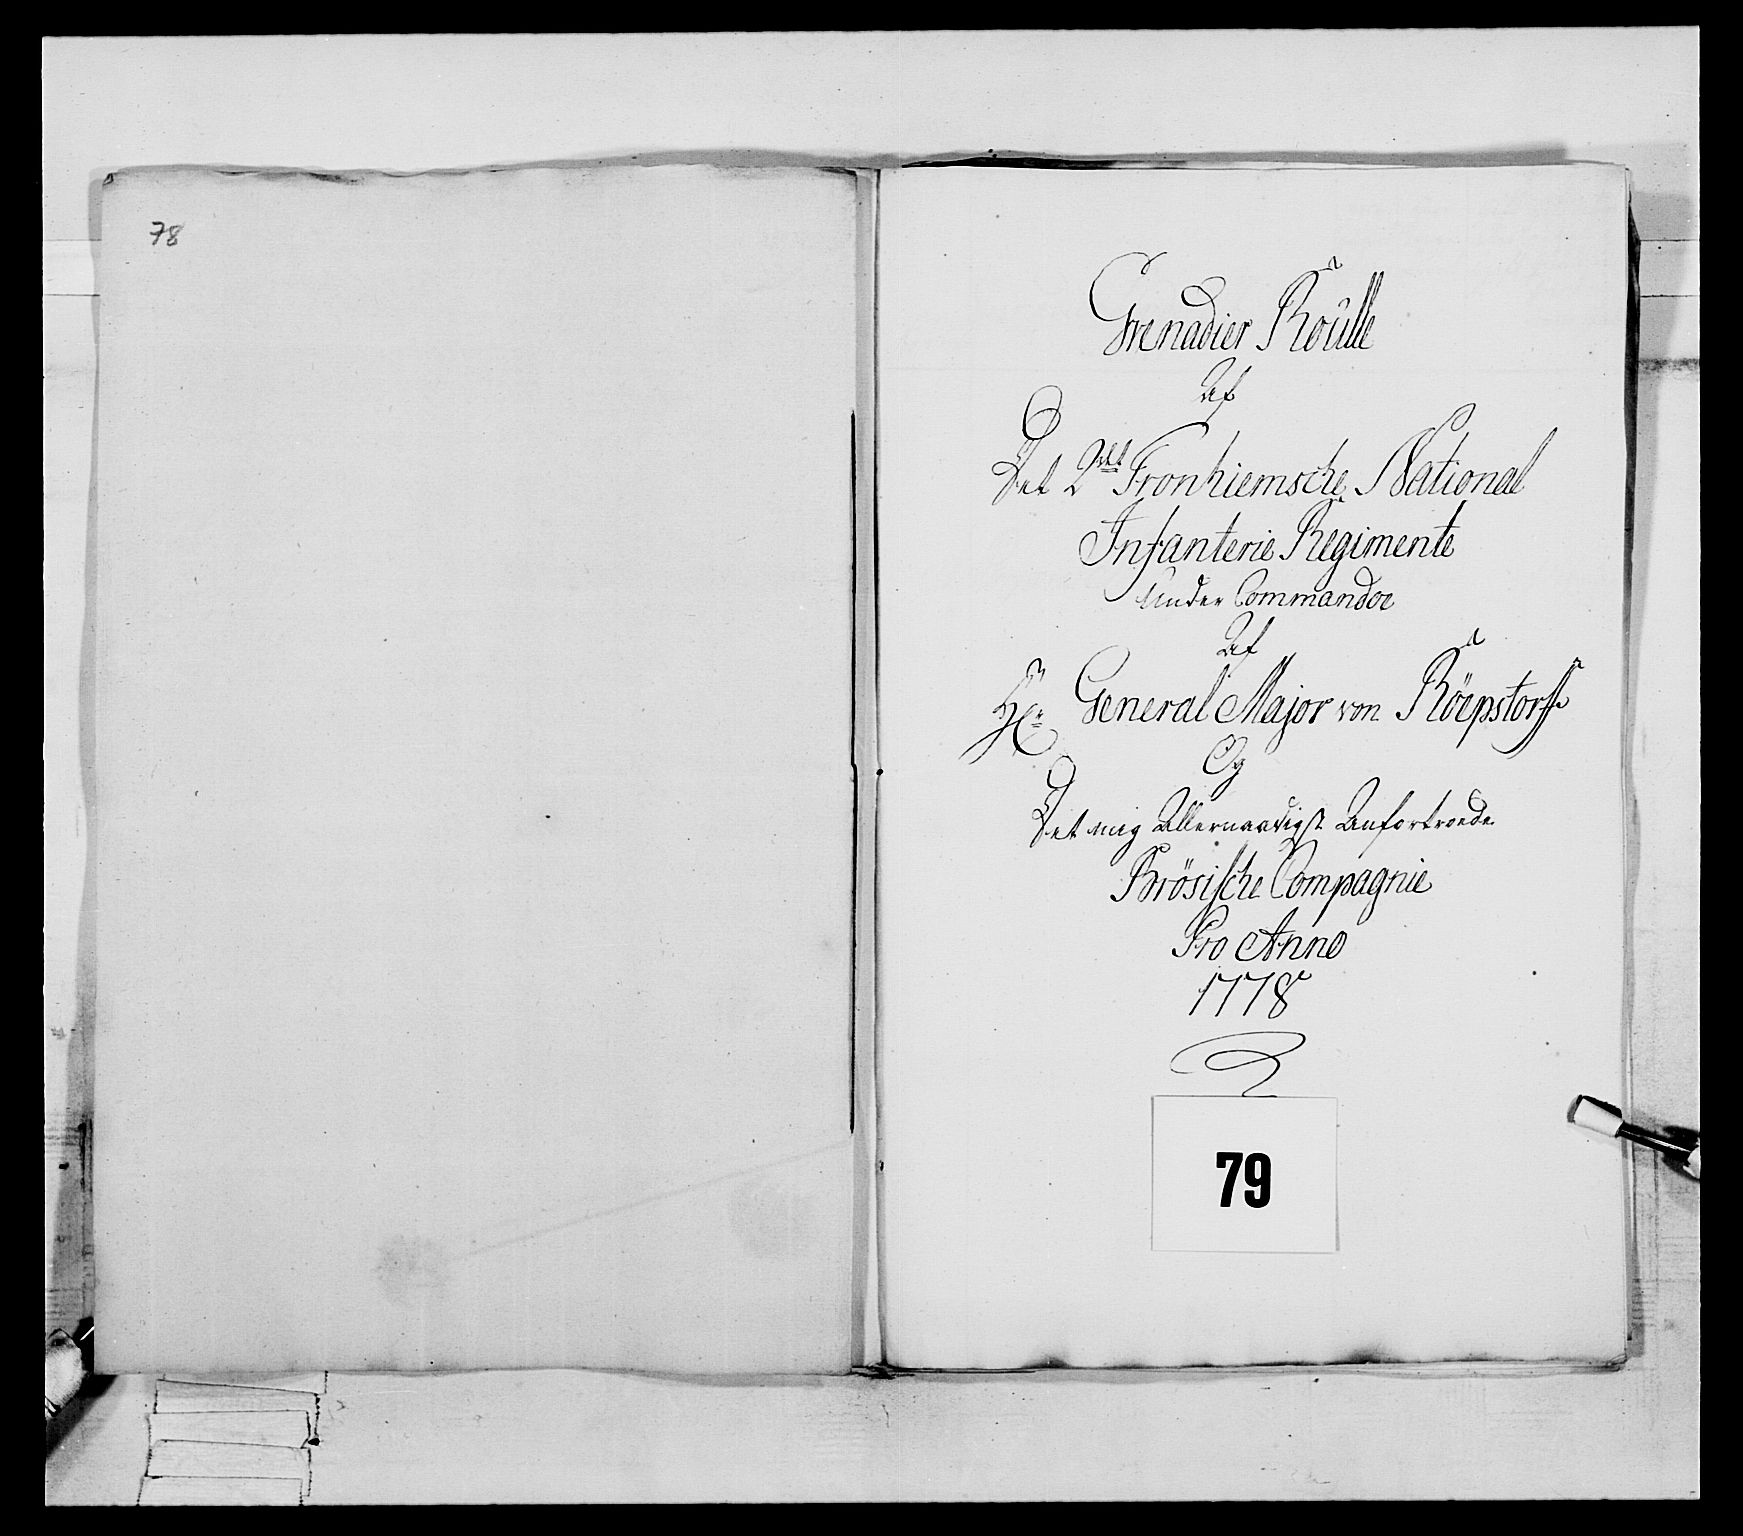 78
Grenadier Roulle
Af
Det 2det Tronhiemsche National
Infanterie Regimente
Under Commandoe
Af
Hr General Major von Röepstorff
Og
Det mig Allernaadigst Anfortroede
Brösische Compagnie
Pro Anno
1778
79